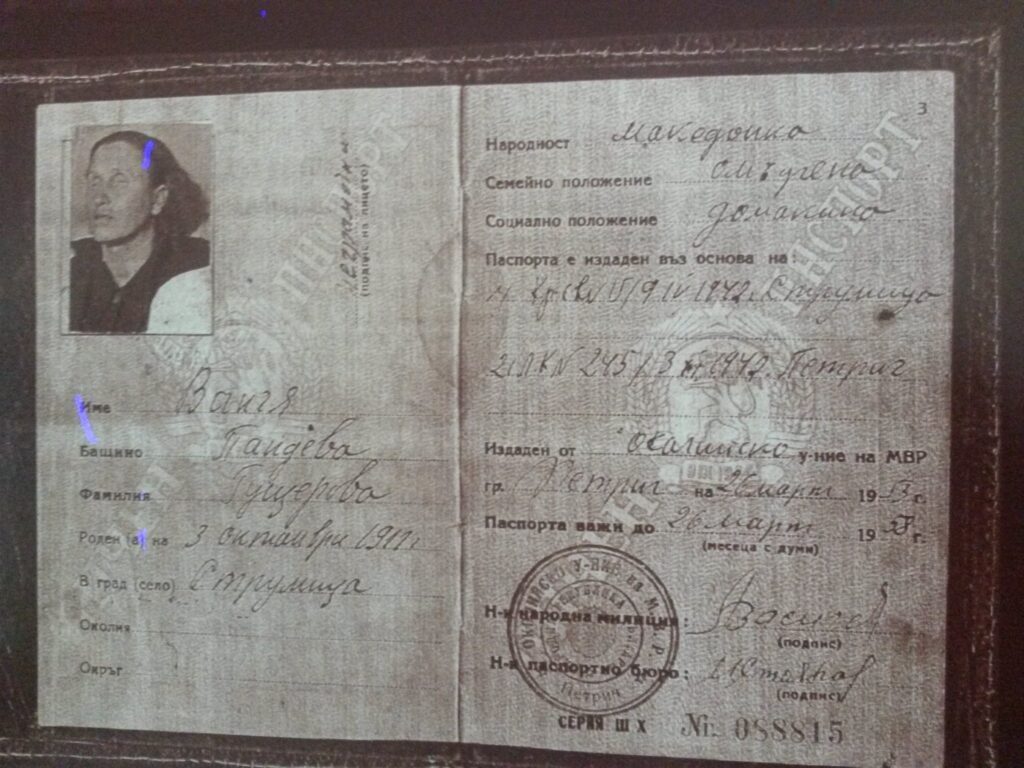 ПАСПОРТ
(подпис на лицето)
Име Вангя
Бащино Пандева
Фамилия Гущерова
Роден (а) на 3 октомври 1911 г.
В град (село) Струмица
Околия
Окръг
3
ПАСПОРТ
Народност Македонка
Семейно положение омъжена
Социално положение домакиня
Паспорта е издаден въз основа на:
15/9 IV 1942. Струмица
2) ЛК № 245/3 1942. Петрич
Издаден от Околийско у-ние на МВР
гр. Петрич на 26 март 19 г.
Паспорта важи до 26 март 1958 г.
(месеца с думи)
Н-к народна милиция:
(подпис)
Н-к паспортно бюро:
(подпис)
ОКОЛИЙСКО У-НИЕ НА М.В.Р.
Петрич
СЕРИЯ Ш Х № 088815